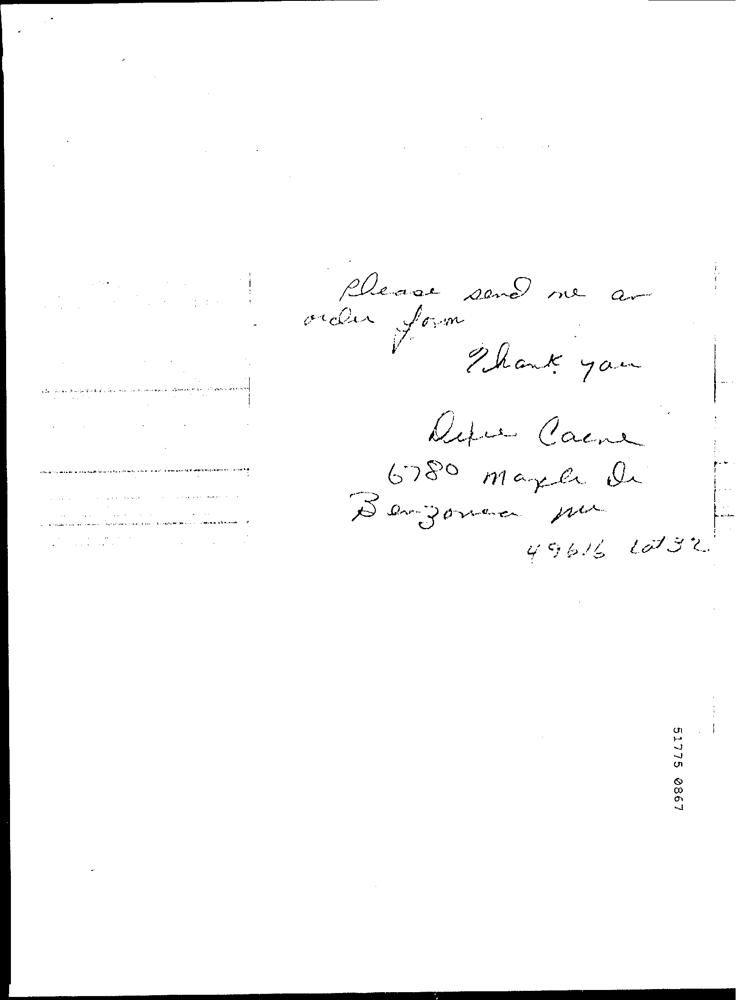 Please send me an
order form
Thank you
6780 Maple Dr
Benzonia MI
49616 Lot 32
51775 0867